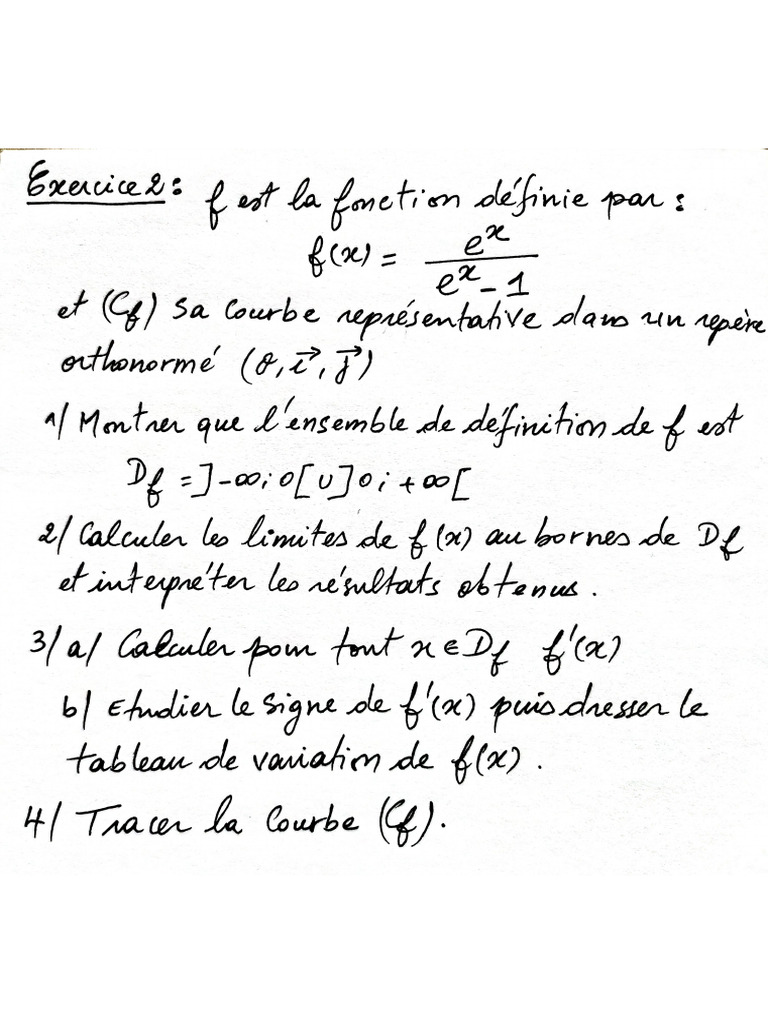 Exercice 2: f est la fonction définie par :
f(x) = e^x / (e^x - 1)
et (Cf) sa courbe représentative dans un repère
orthonormé (O, i⃗, j⃗)
1/ Montrer que l'ensemble de définition de f est
Df = ]-∞; 0[ U ]0; +∞[
2/ Calculer les limites de f(x) au bornes de Df
et interpréter les résultats obtenus.
3/ a/ Calculer pour tout x ∈ Df f'(x)
b/ Etudier le signe de f'(x) puis dresser le
tableau de variation de f(x).
4/ Tracer la courbe (Cf).